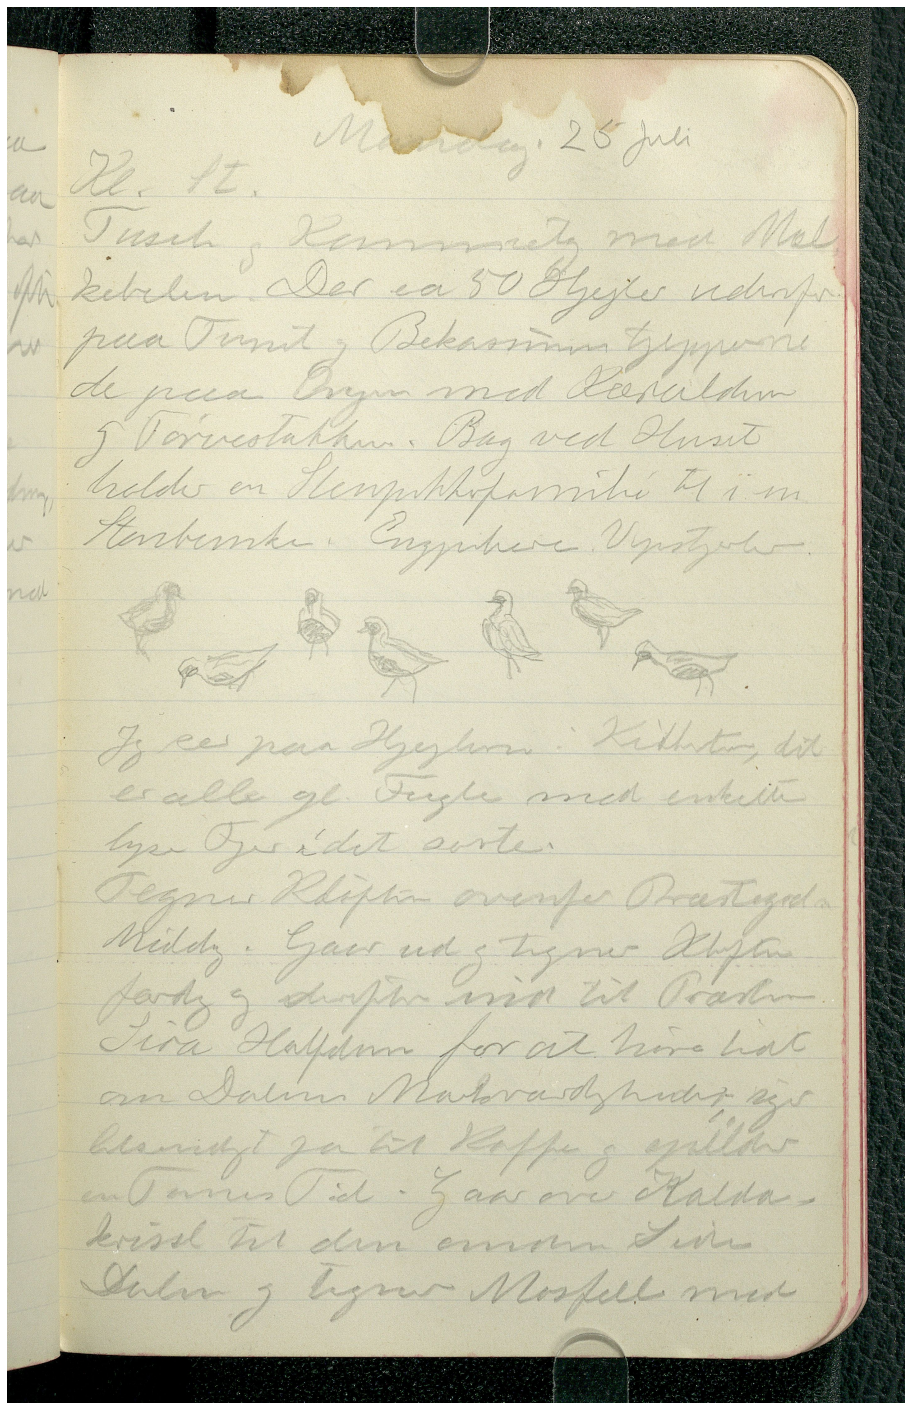 Mandag. 25 Juli
Kl. St.
Tusch og med Mal
kebelen. Der ca 50 Hjejler udenfor
paa Tunet og Bekasinen
de paa Engen med Kærulden
og Tørvestakken. Bag ved Huset
holder en Stenpikkerfamilie til i en
Stenbunke. Engpibere. Vipstjerter.
Jeg ser paa Hjejlerne i Kikkerten, det
er alle gl. Fugle med enkelte
lyse Fjer i det sorte.
Tegner Kløften ovenfor Præstegd.
Middg. Gaar ud og tegner Kløften
færdig og derefter ind til Præsten
Sira Halfdan for at høre lidt
om Dalens Mærkværdigheder, siger
ja til Kaffe og spilder
en Times Tid. Gaar over Kalda-
kvisl til den anden Side
Dalen og tegner Mosfell med